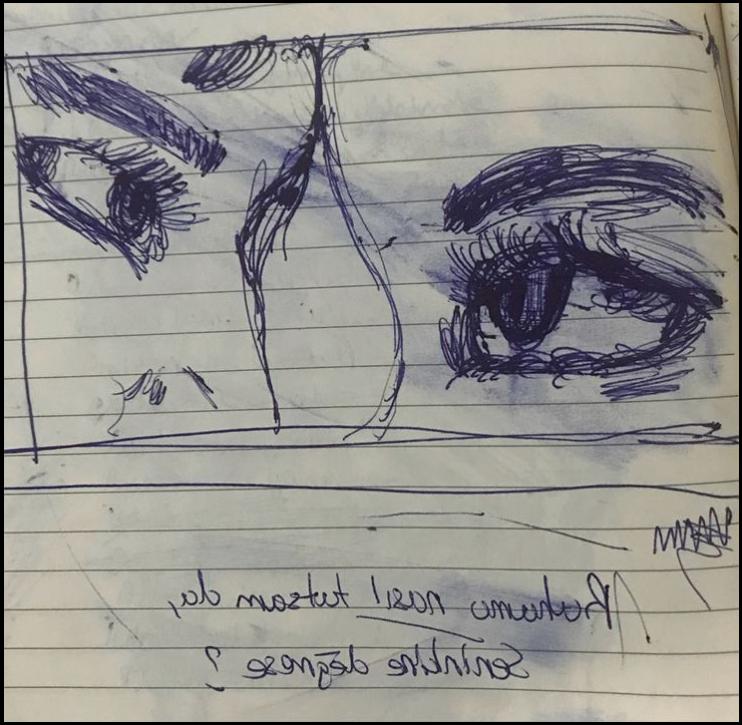 Ruhumu nasıl tutsam da,
Seninkine değmese?